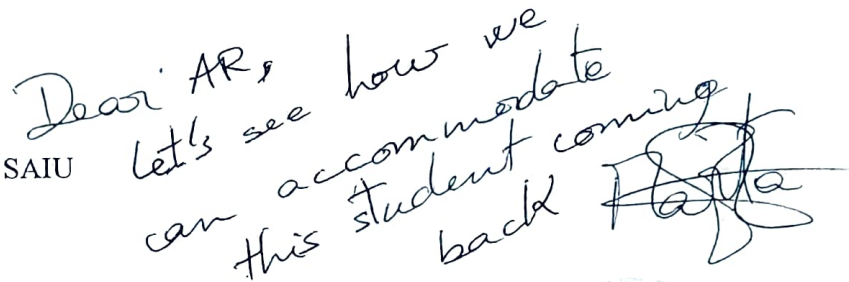 Dear AR,
Let's see how we
can accommodate
this student coming
back
SAIU